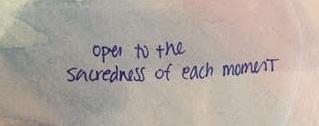 open to the
sacredness of each moment